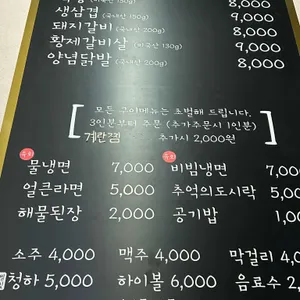 (국내산 150g) 8,000
생삼겹 (국내산 150g) 9,000
돼지갈비 (국내산 200g) 8,000
황제갈비살 (미국산 130g) 9,000
양념닭발 (국내산 200g) 8,000
모든 구이메뉴는 초벌해 드립니다.
3인분부터 주문 (추가주문시 1인분)
계란찜 추가시 2,000원
물냉면 7,000 비빔냉면
얼큰라면 5,000 추억의도시락 5,00
해물된장 2,000 공기밥 1,0
소주 4,000 맥주 4,000 막걸리 4,0
청하 5,000 하이볼 6,000 음료수 2,